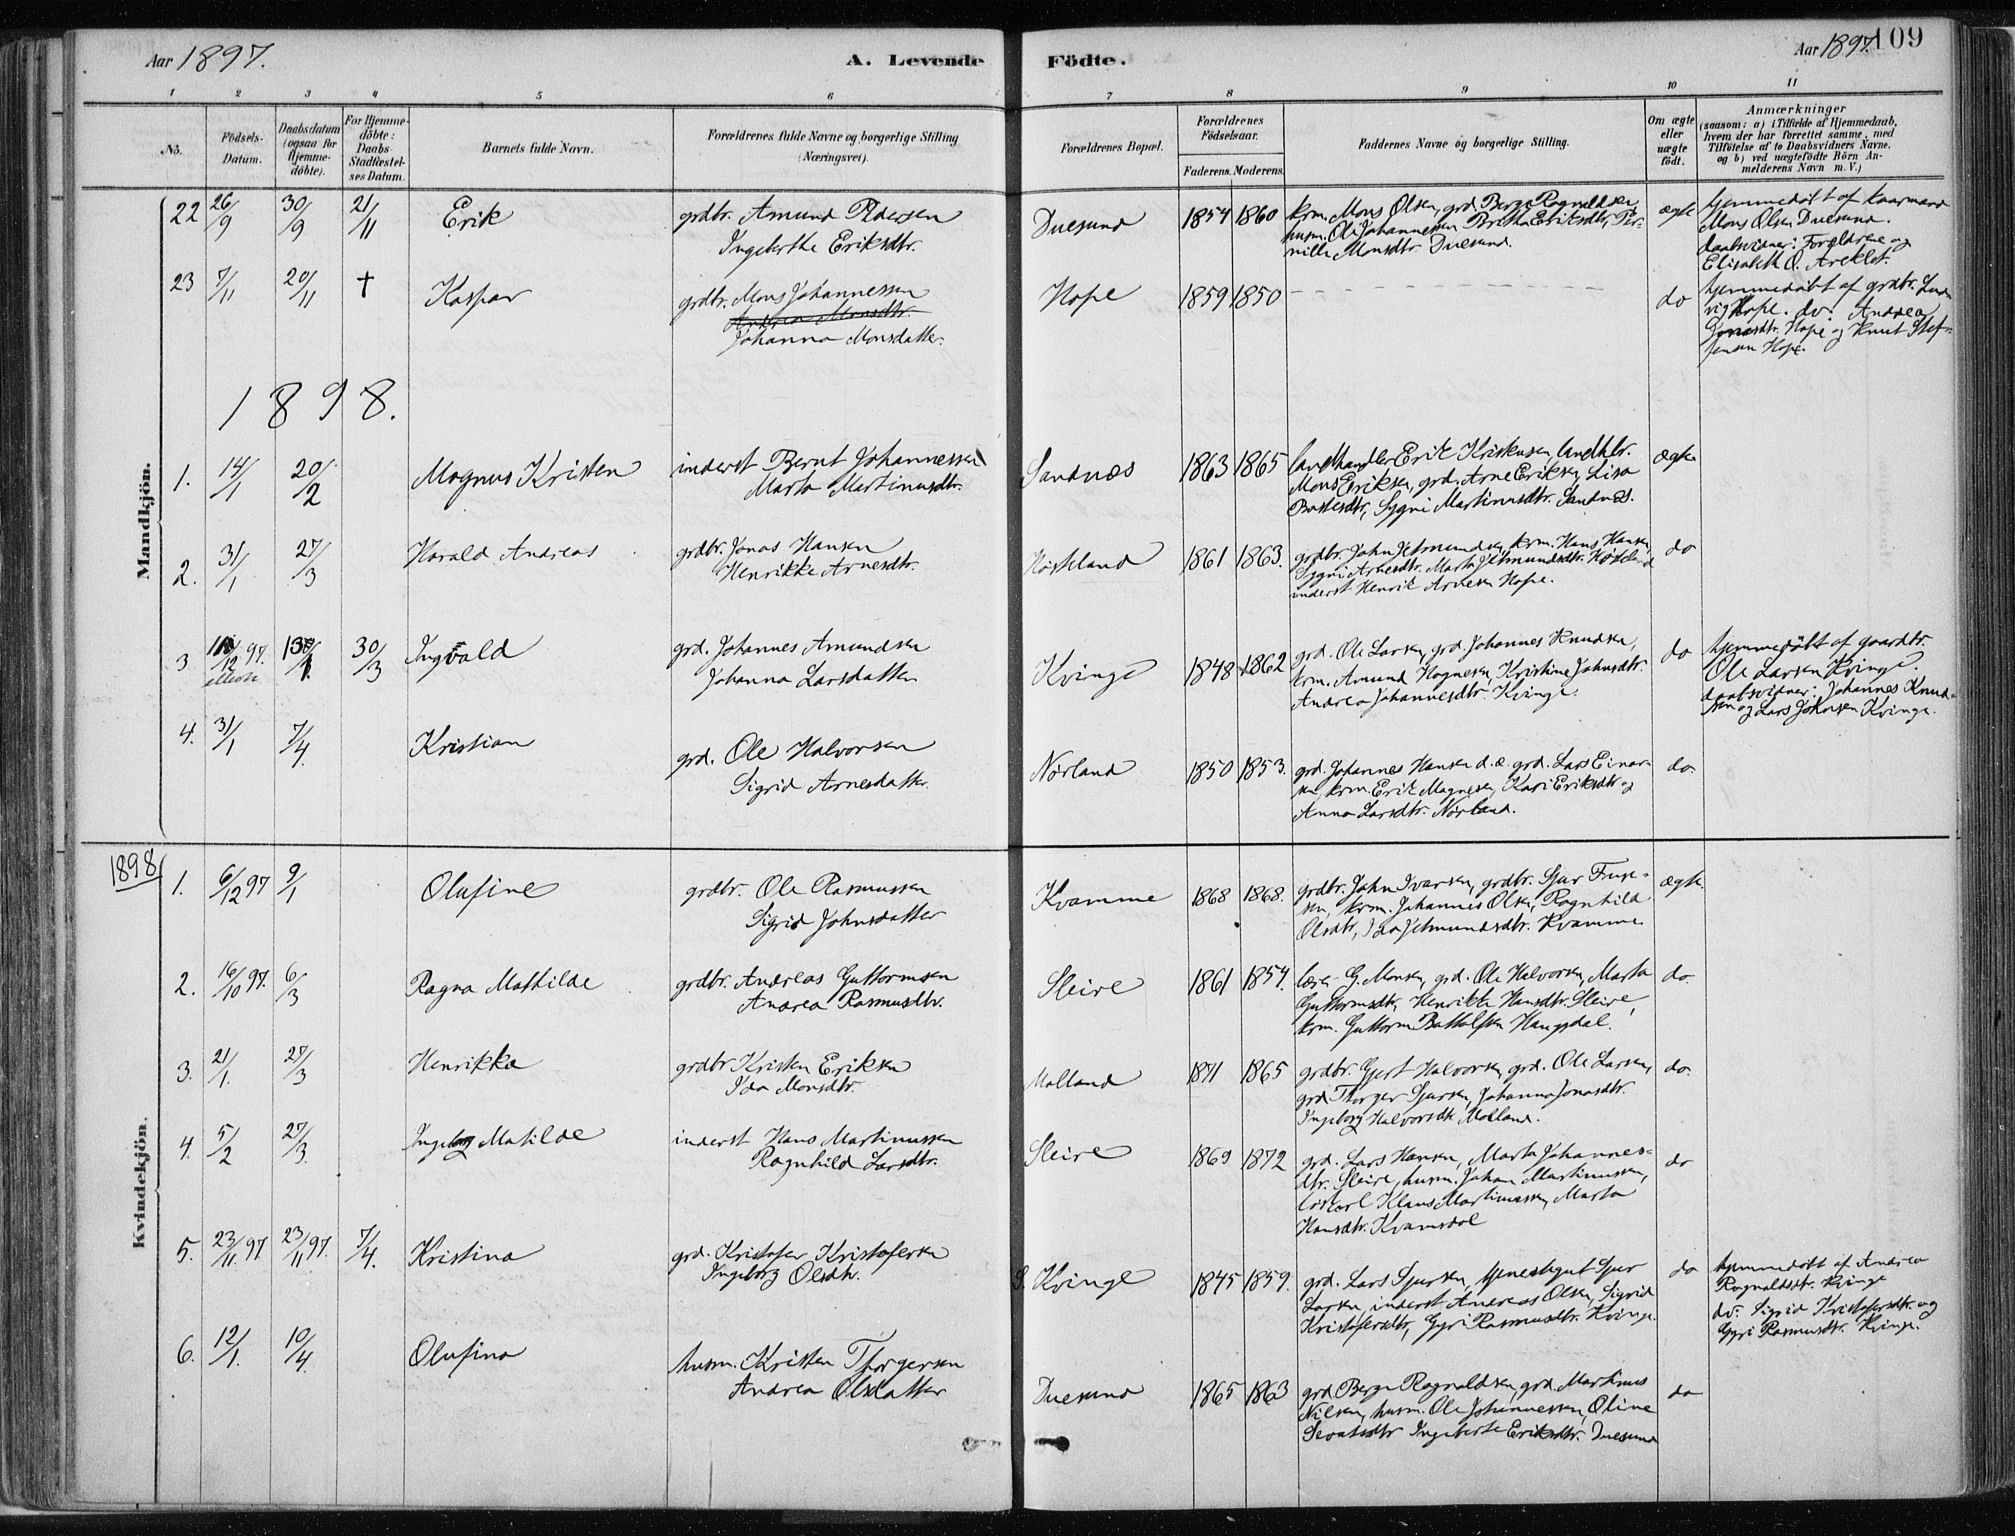 Aar 1897.
A. Levende Födte.
Aar 1897. 109
1 2 3 4 5 6 7 8 9 10 11
No.
Födsels-Datum.
Daabsdatum (ogsaa for Hjemme-döbte).
For Hjemme-döbte: Daabs-Stadfestel-ses Datum.
Barnets fulde Navn.
Forældrenes fulde Navne og borgerlige Stilling (Næringsvei).
Forældrenes Bopæl.
Forældrenes Födselsaar.
Faderens. Moderens.
Faddernes Navne og borgerlige Stilling.
Om ægte eller uægte födt.
Anmærkninger
(saasom: a) i Tilfælde af Hjemmedaab, hvem der har forrettet samme, med Tilföielse af to Daabsvidners Navne. og b) ved uægtefödte Börn An-melderens Navn m. V.)
Mandkjön.
22 26/9 30/9 21/11 Erik
grdbr. Amund Pedersen
Ingeberthe Eriksdtr.
Duesund 1854 1860
krm. Mons Olsen, grd. Berge Ragnaldsen,
husm. Ole Johannessen, Eriksdtr, Per-
nille Monsdtr. Duesund.
ægte
hjemmedøbt af kaarmand
Mons Olsen Duesund.
daabsvidner: Forældrene og
Elisabeth O.
23 7/11 20/11 † Kaspar
grdbr. Mons Johannessen
Andrea Monsdtr.
Johanna Monsdatter.
Hope 1859 1850
do
hjemmedøbt af grdbr. Lud-
vig Hope. dv. Andrea
Jonasdtr. Hope og Knut Stef-
fensen Hope.
1898.
1. 14/1 20/2 Magnus Kristen
inderst Bernt Johannessen
Marta Martinusdtr.
Sandnæs 1863 1865
landhandler Erik Kristensen, landhlr.
Mons Eriksen, grd. Arne Eriksen, Lisa
Sygni Martinusdtr. Sandnæs.
ægte
2. 31/1 27/3 Harald Andreas
grdbr. Jonas Hansen
Henrikke Arnesdtr.
Høsteland 1861 1863.
grdbr. John Jetmundsen, krm. Hans Hansen,
Sygni Arnesdtr. Marta Jetmundsdtr. Høsteland
inderst Henrik Arnesen Hope.
do
3 12 97. 30/3 Ingvald
grd. Johannes Amundsen
Johanna Larsdatter
Kvinge 1848 1862
grd. Ole Larsen, grd. Johannes Knudsen,
krm. Amund Hognesen, Kristine Johnsdtr.
Andrea Johannesdtr. Kvinge.
do
hjemmedøbt af gaardbr.
Ole Larsen Kvinge.
daabsvidner: Johannes Knud-
sen og Lars Johnsen Kvinge.
4. 31/1 7/4. Kristian
grd. Ole Halvorsen
Sigrid Arnesdatter.
Nørland 1850 1853.
grd. Johannes Hansen d.æ. grd. Lars Einar-
sen, krm. Erik Magnesen, Kari Eriksdtr og
Anna Larsdtr. Nørland.
do.
1898
Kvindekjön.
1. 6/12 97 9/1 Olufine
grdbr. Ole Rasmussen
Sigrid Johnsdatter
Kvamme 1868 1868.
grdbr. John Ivarsen, grdbr. Sjur
krm. Johannes Olsen, Ragnhild
Olsdtr, Ida Jetmundsdtr. Kvamme
ægte.
2. 16/10 97. 6/3 Ragna Mathilde
grdbr. Andreas Guttormsen
Andrea Rasmusdtr.
Sleire 1861 1854.
lærer G. Monsen, grd. Ole Halvorsen, Marta
Guttormsdtr, Henrikke Hansdtr. Sleire,
krm. Guttorm Battolfsen Haugsdal.
do.
3. 21/1. 27/3 Henrikka
grdbr Kristen Eriksen
Ida Monsdtr.
Molland 1871 1865
grdbr. Gjert Halvorsen, grd. Ole Larsen,
grd Thorger Sjursen, Johanna Jonasdtr.
Ingeborg Halvorsdtr. Molland.
do.
4. 5/2 27/3. Ingeborg Matilde
inderst Hans Martinussen
Ragnhild Larsdtr.
Sleire 1869 1872
grd. Lars Hansen, Marta Johannes-
dtr. Sleire, husm. Johan Martinussen,
løskarl Klaus Martinussen, Marta
Hansdtr. Kvamsdal
do
5. 23/11. 97. 23/11 97. 7/4. Kristina
grd. Kristofer Kristofersen
Ingeborg Olsdtr.
S. Kvinge 1845 1859.
grd. Lars Sjursen, tjenestegut Sjur
Larsen, inderst Andreas Olsen, Sigrid
Kristofersdtr, Gyri Rasmusdtr. Kvinge.
do
hjemmedøbt af Andrea
Ragnaldsdtr. Kvinge
dv: Sigrid Kristofersdtr. og
Gyri Rasmusdtr. Kvinge.
6. 12/1. 10/4. Olufina
husm. Kristen Thorgersen
Andrea Olsdatter
Duesund 1865 1863
grd. Berge Ragnaldsen, grd. Martinus
Nilsen, husm. Ole Johannessen, Oline
Sivatsdtr Ingeberte Eriksdtr. Duesund
do